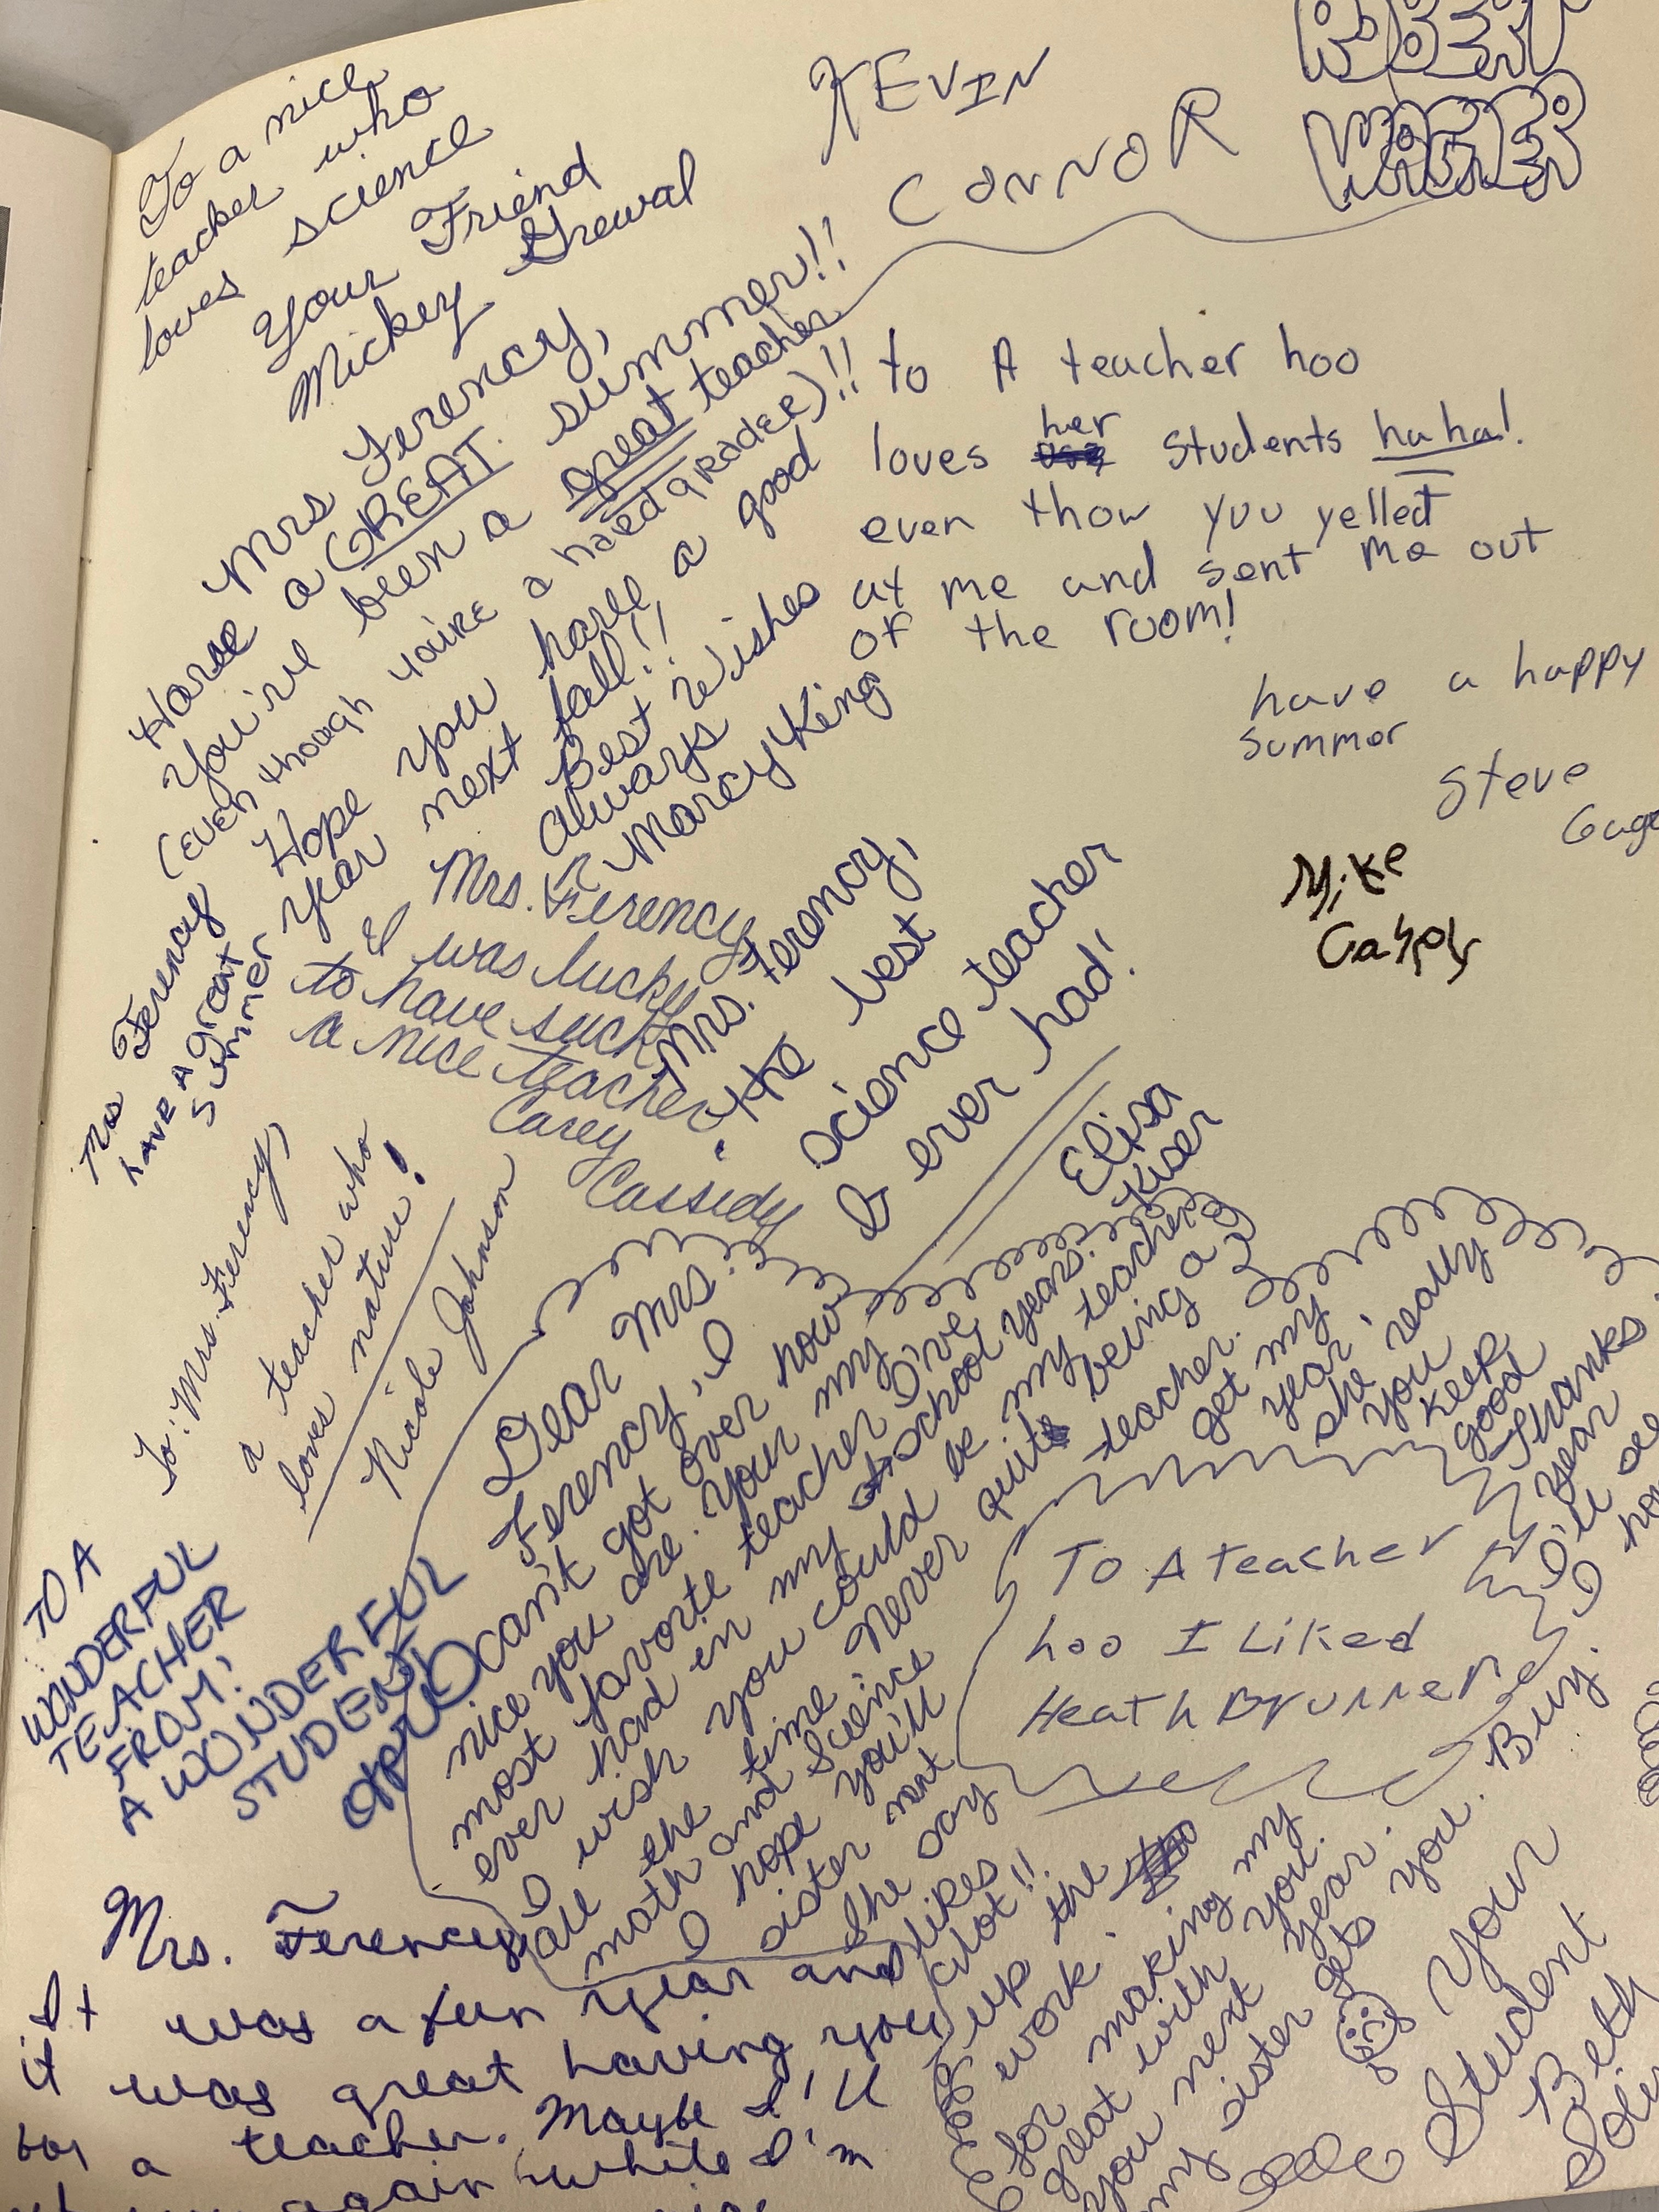 To a nice
teacher who
loves science
Your Friend
Mickey Grewal
KEVIN
CONNOR
ROBERT
WAGNER
Mrs Ferency,
Have a GREAT summer!!
You're been a great teacher
(even though you're a hard grader)!!
Hope you have a good
year next fall!!
Best Wishes
Always
Marcy King
to A teacher hoo
loves her students haha!
even thow you yelled
at me and sent me out
of the room!
have a happy
summer
Steve
Mike
Mrs Ferency
have a great
summer
Mrs. Ferency
I was lucky
to have such
a nice teacher.
Carey
Cassidy
Mrs. Ferency,
the best
science teacher
I ever had!
Elisa
Kiser
To: Mrs. Ferency,
a teacher who
loves nature!
Nicole Johnson
TO A
WONDERFUL
TEACHER
FROM:
A WONDERFUL
STUDENT
Dear Mrs.
Ferency, I
can't got over how
nice you are. Your my
most favorte teacher I've
ever had in my school years.
I wish you could be my teacher
all the time. Never quit being a
math and science teacher.
I hope you'll get my
sister next year,
she say she really
likes you
alot!! Keep
up the good
work. Thanks
for making my year
great with you. I'll see
you next year. I
my sister gets you. Buy.
Your
Student
Beth
To A teacher
hoo I Liked
Heath Brunner
Mrs. Ferency
It was a fun year and
it was great having you
for a teacher. Maybe I'll
again while I'm